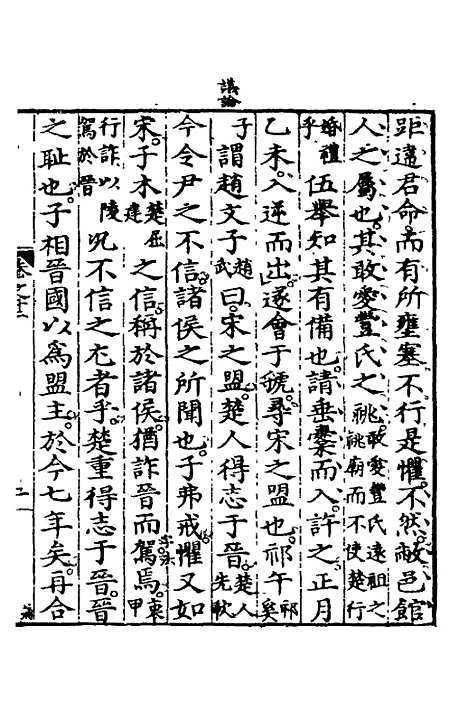 議論
距違君命而有所壅塞不行是懼不然敝邑館
人之屬也其敢愛豐氏之祧敢愛豐氏遠祖之祧廟而不使楚行
婚禮乎伍舉知其有備也請垂櫜而入許之正月
乙未入逆而出遂會于虢尋宋之盟也祁午祁奚
子謂趙文子趙武曰宋之盟楚人得志于晉楚人先歃
今令尹之不信諸侯之所聞也子弗戒懼又如
宋子木楚屈建之信稱於諸侯猶詐晉而駕焉衷甲
行詐以陵駕於晉況不信之尤者乎楚重得志于晉晉
之恥也子相晉國以爲盟主於今七年矣再合